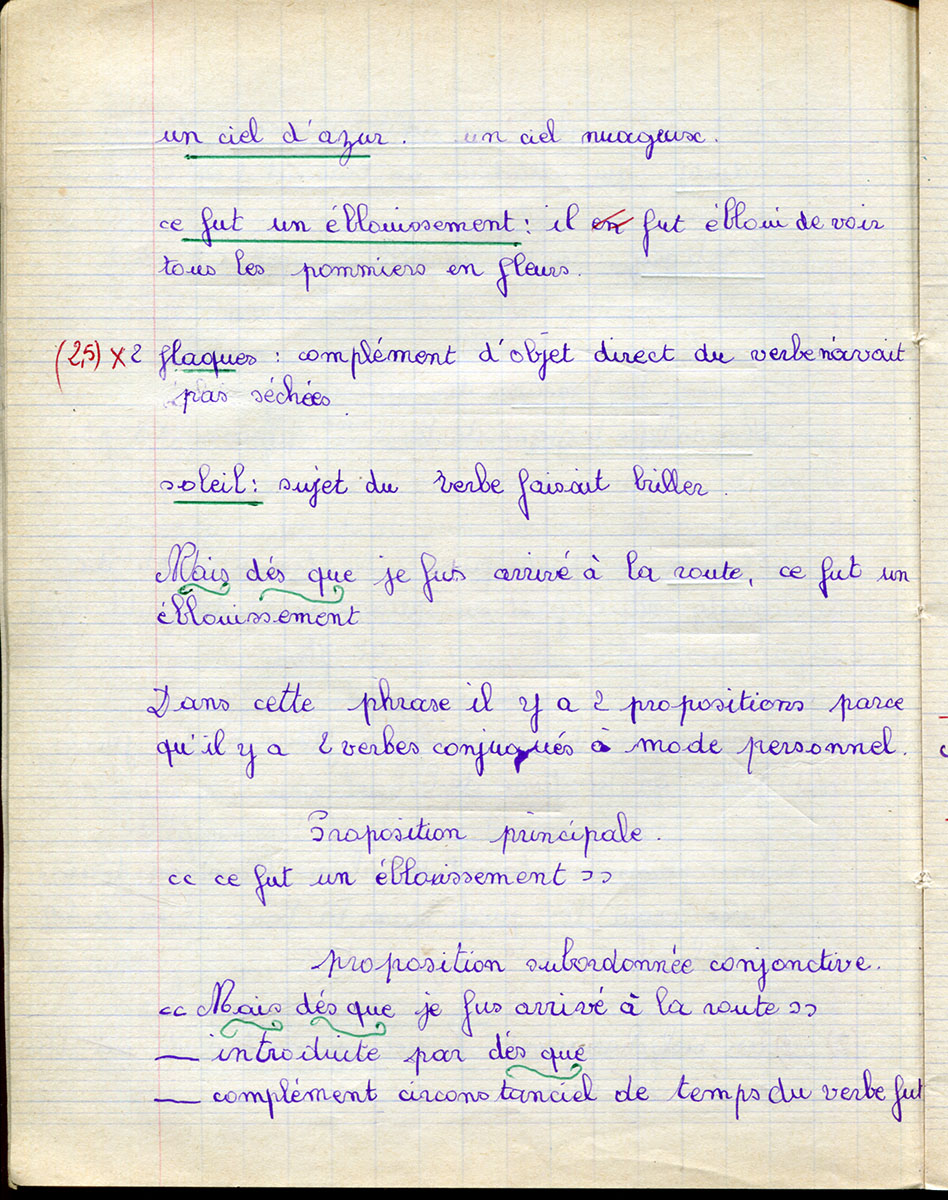 un ciel d'azur. un ciel nuageux.
ce fut un éblouissement : il en fut ébloui de voir
tous les pommiers en fleurs.
(2,5) x 2 flaques : complément d'objet direct du verbe n'avait
pas séchées
soleil : sujet du verbe faisait briller.
Mais dés que je fus arrivé à la route, ce fut un
éblouissement
Dans cette phrase il y a 2 propositions parce
qu'il y a 2 verbes conjugués à mode personnel.
Proposition principale.
<< ce fut un éblouissement >>
proposition subordonnée conjonctive.
<< Mais dés que je fus arrivé à la route >>
— introduite par dés que
— complément circonstanciel de temps du verbe fut